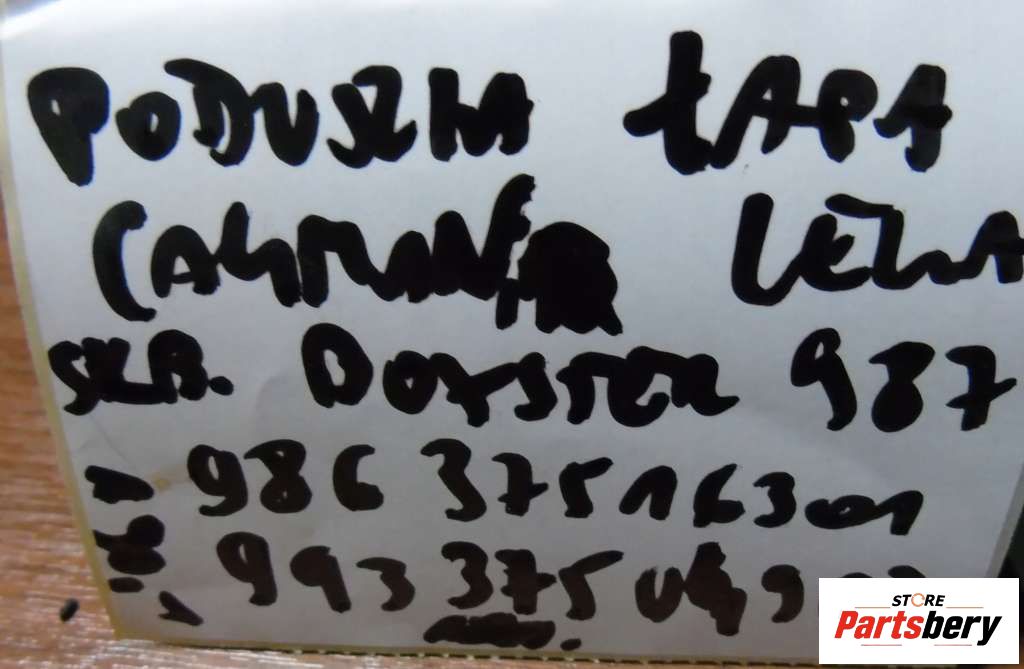 PODUSZKA ŁAPA
CAYMAN, LEWA
SKRB. BOXSTER 987
986 375 163 01
993 375
STORE
Partsbery